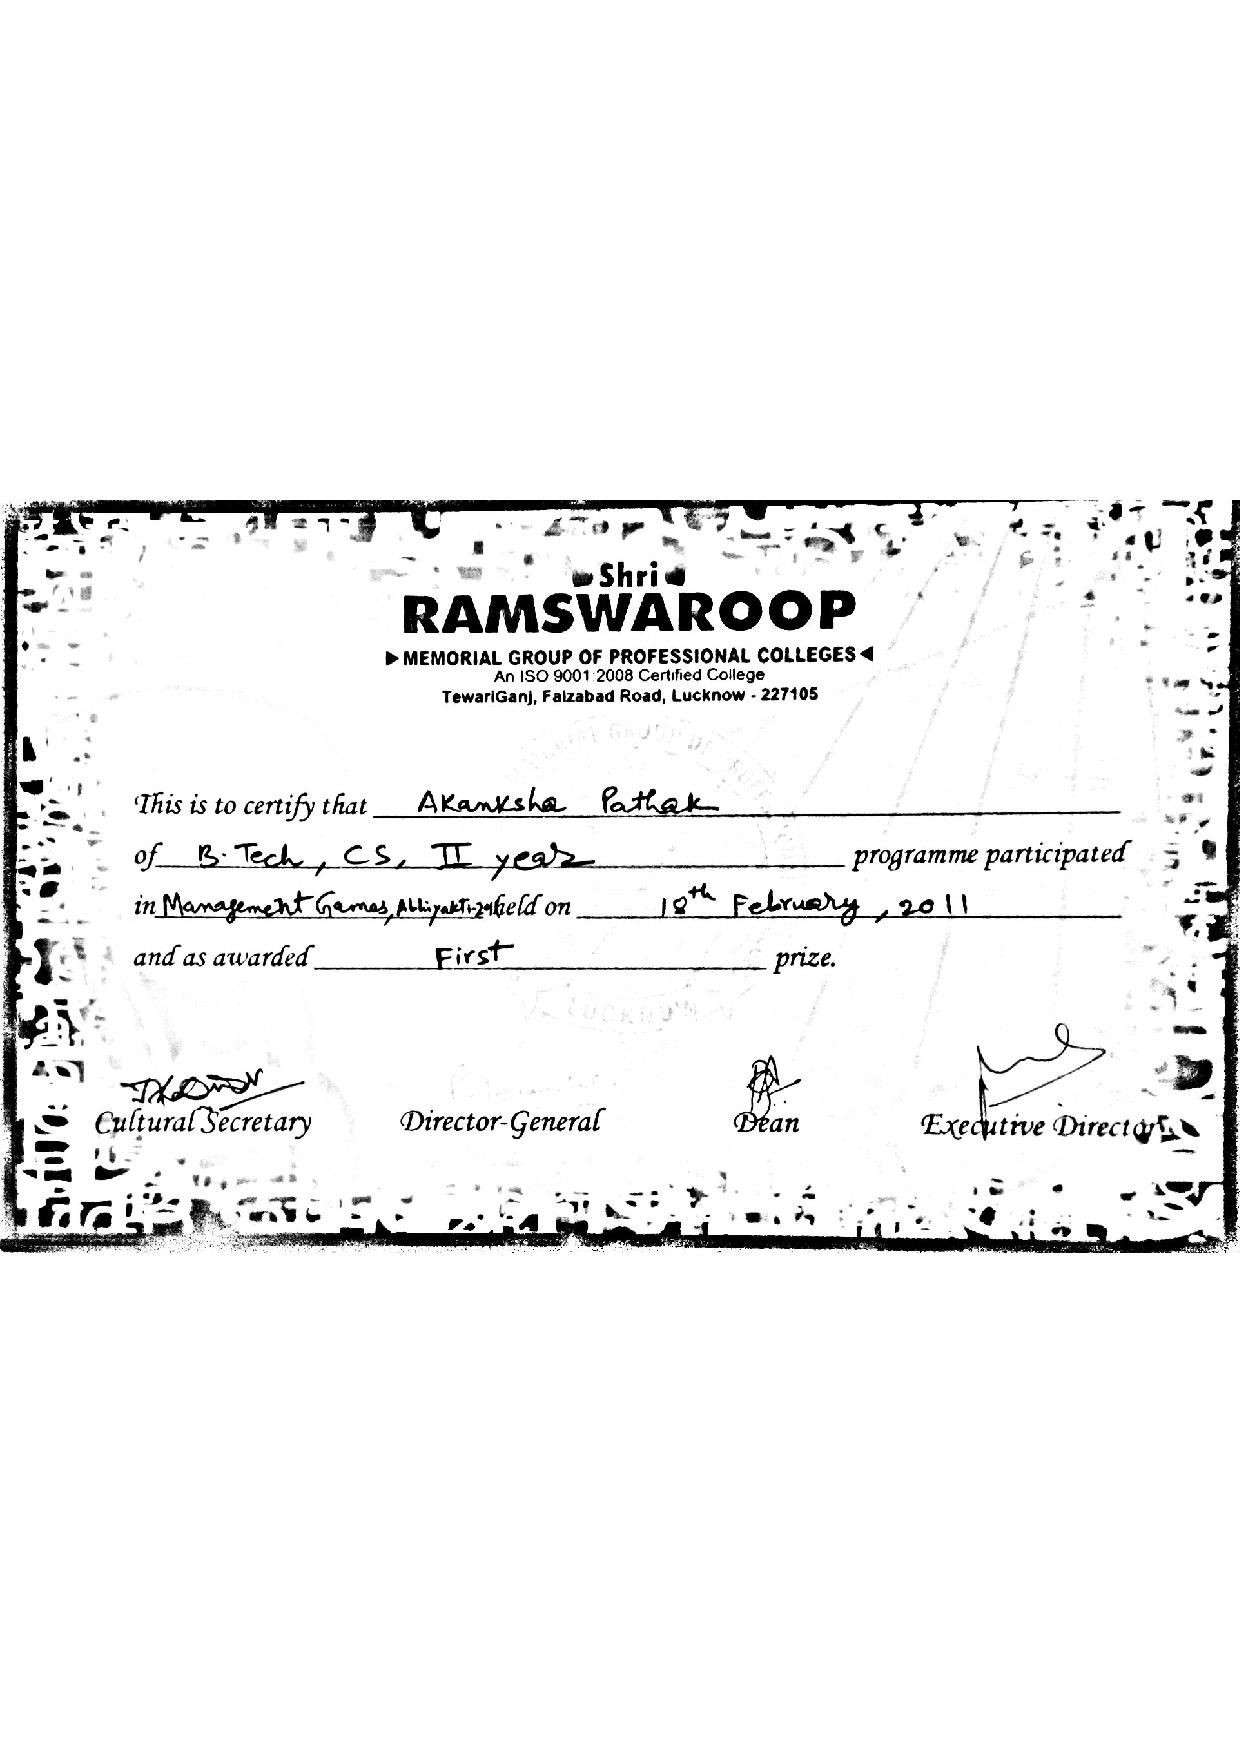 Shri
RAMSWAROOP
MEMORIAL GROUP OF PROFESSIONAL COLLEGES
An ISO 9001:2008 Certified College
TewariGanj, Faizabad Road, Lucknow - 227105
This is to certify that Akanksha Pathak
of B.Tech, CS, II year programme participated
in Management Games, held on 18th February, 2011
and as awarded First prize.
Cultural Secretary Director-General Dean Executive Director